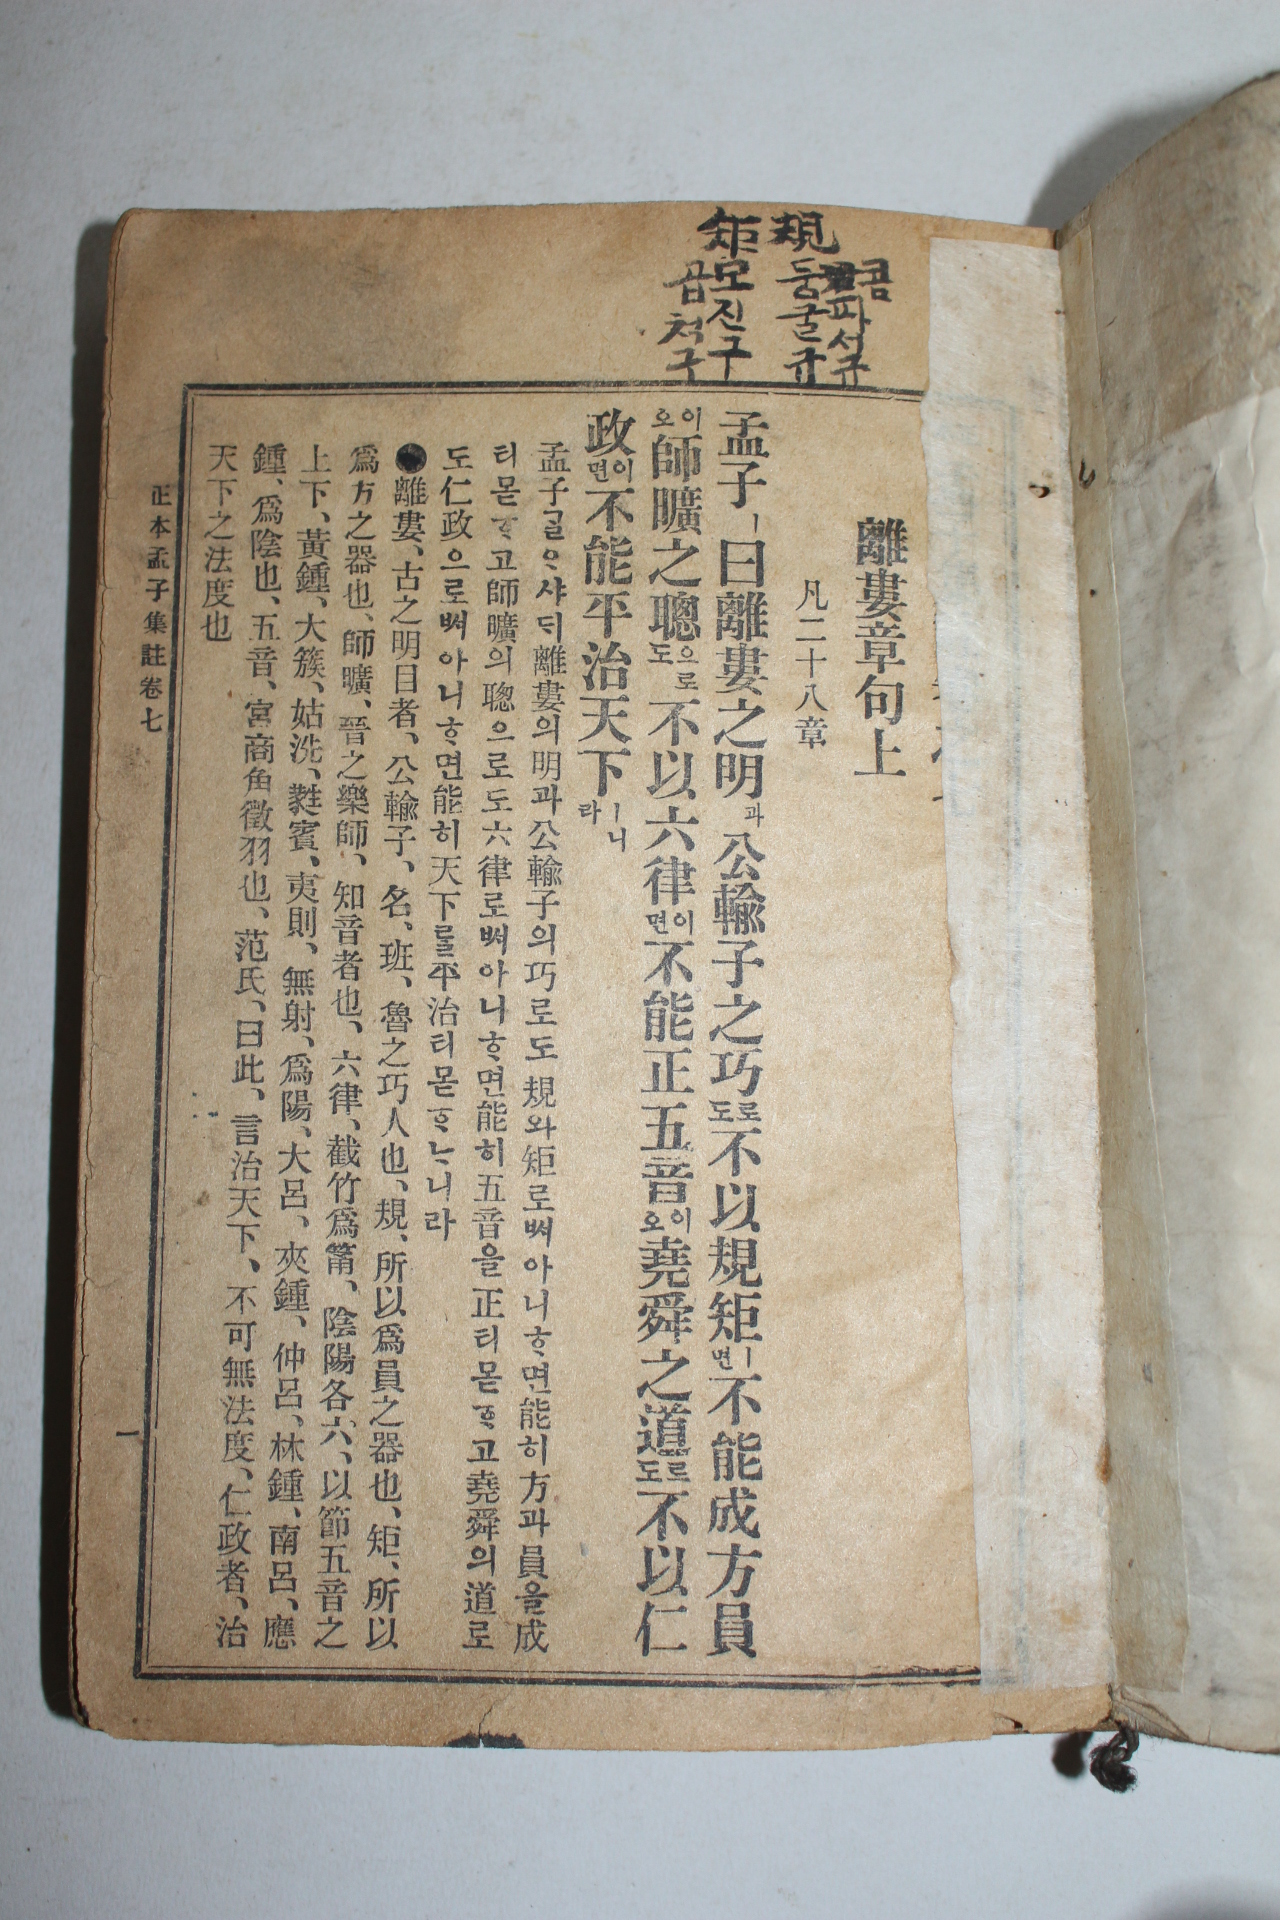 規 콤파서규
둥굴규
矩 모진구
곱척구
離婁章句上
凡二十八章
孟子ㅣ曰離婁之明과公輸子之巧로도不以規矩ㅣ면不能成方員
이오師曠之聰으로도不以六律이면不能正五音이오堯舜之道로도不以仁
政이면不能平治天下ㅣ니라
孟子ᄀᆞᆯᄋᆞ샤ᄃᆡ離婁의明과公輸子의巧로도規와矩로ᄡᅥ아니ᄒᆞ면能히方과員을成
티몯ᄒᆞ고師曠의聰으로도六律로ᄡᅥ아니ᄒᆞ면能히五音을正티몯ᄒᆞ고堯舜의道로
도仁政으로ᄡᅥ아니ᄒᆞ면能히天下ᄅᆞᆯ平治티몯ᄒᆞᄂᆞ니라
●離婁、古之明目者、公輸子、名、班、魯之巧人也、規、所以爲員之器也、矩、所以
爲方之器也、師曠、晉之樂師、知音者也、六律、截竹爲筩、陰陽各六、以節五音之
上下、黃鍾、大簇、姑洗、蕤賓、夷則、無射、爲陽、大呂、夾鍾、仲呂、林鍾、南呂、應
鍾、爲陰也、五音、宮商角徵羽也、范氏、曰此、言治天下、不可無法度、仁政者、治
天下之法度也
正本孟子集註卷七
一